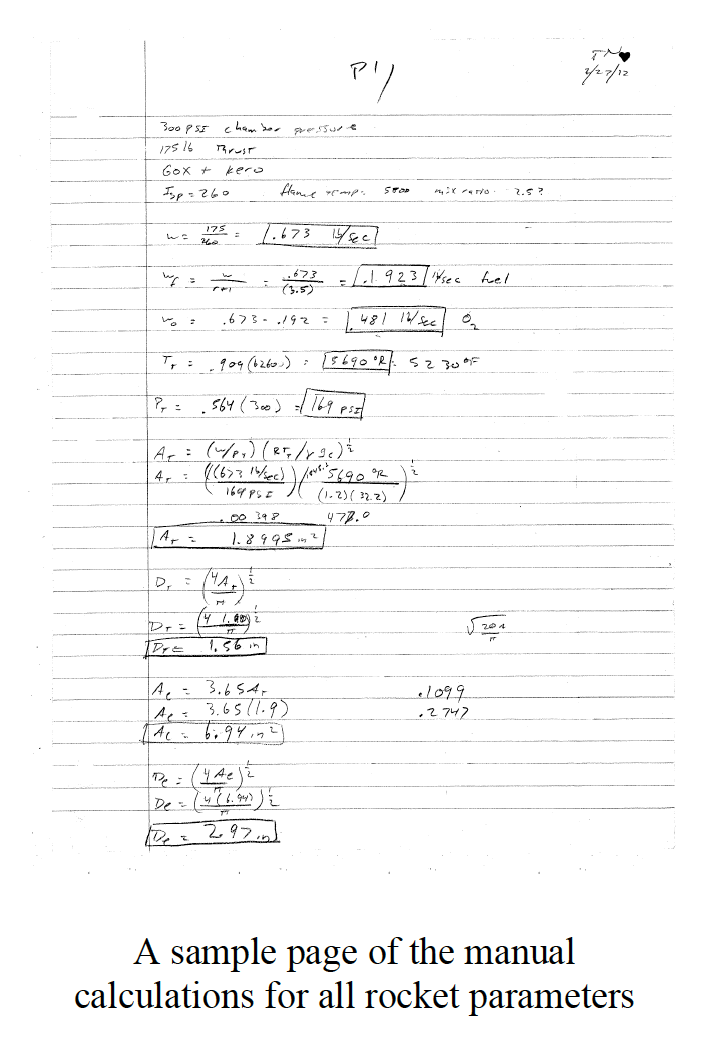 P1
2/27/12
300 PSI chamber pressure
175 lb Thrust
GOX + kero
Isp = 260 flame temp. 5800 mix ratio 2.5?
w = 175/260 = .673 lb/sec
wf = w/(r+1) = .673/(3.5) = .1923 lb/sec fuel
wo = .673 - .192 = .481 lb/sec O2
TT = .909(6260) = 5690 °R = 5230 °F
PT = .564(300) = 169 PSI
AT = (w/PT)(RTT/γgc)^1/2
AT = ((.673 lb/sec)/169 PSI)( 5690 °R/(1.2)(32.2))^1/2
.00398 477.0
AT = 1.8995 in²
DT = (4AT/π)^1/2
DT = (4 1.90/π)^1/2
DT = 1.56 in
Ae = 3.65AT .1099
Ae = 3.65(1.9) .2747
Ae = 6.94 in²
De = (4Ae/π)^1/2
De = (4(6.94)/π)^1/2
De = 2.97 in
A sample page of the manual
calculations for all rocket parameters